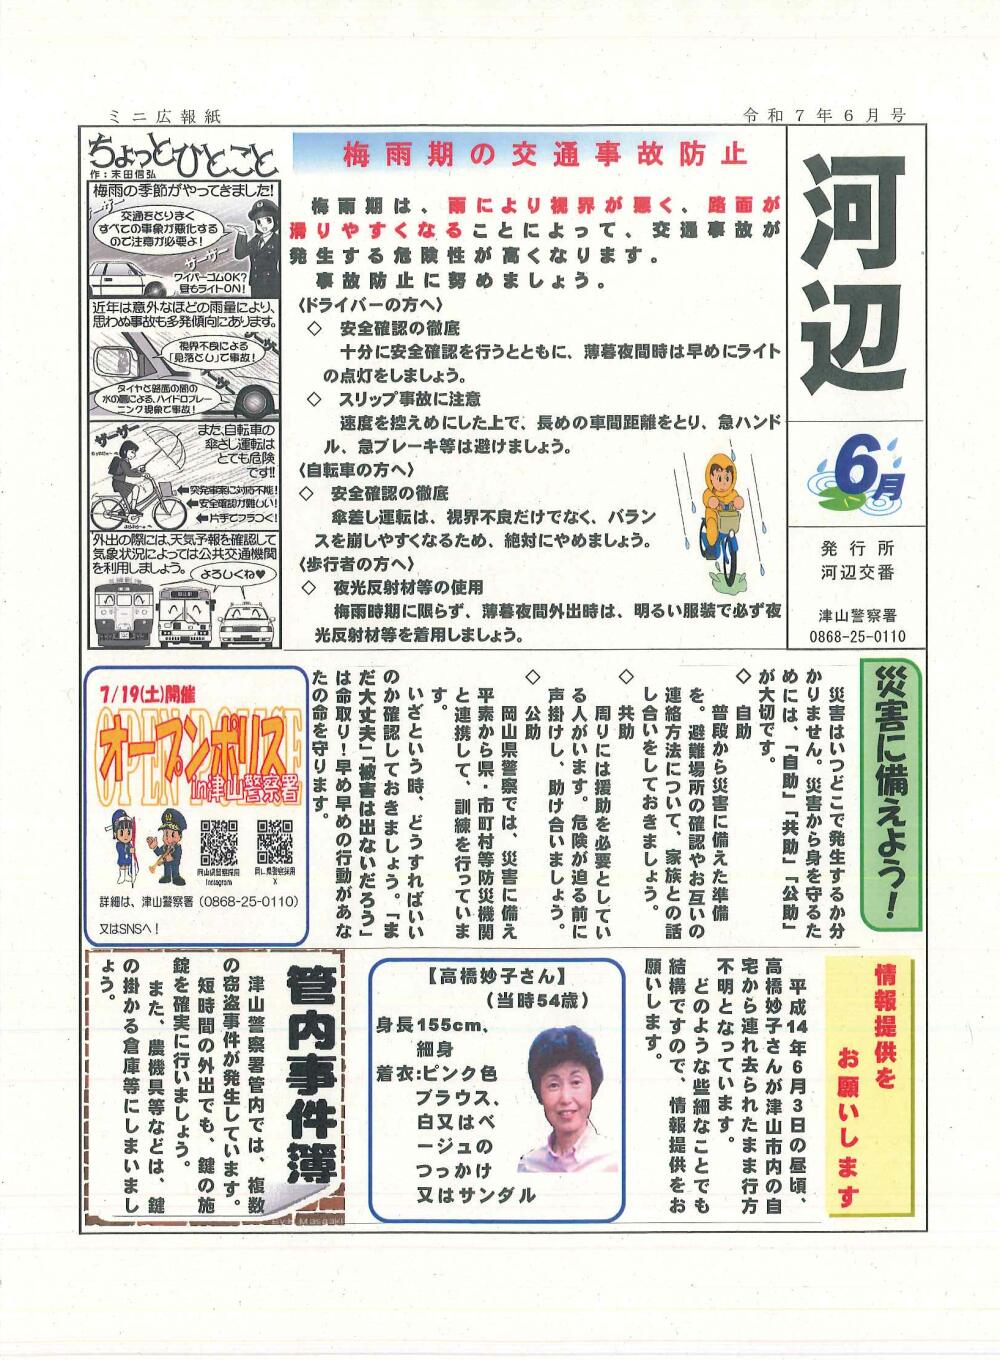 ミニ広報紙
令和7年6月号
河辺
6月
発行所
河辺交番
津山警察署
0868-25-0110
ちょっとひとこと
作：末田信弘
梅雨の季節がやってきました！
交通をとりまく
すべての事象が悪化する
ので注意が必要よ！
ザーザー
ワイパーゴムOK？
昼もライトON！
近年は意外なほどの雨量により、
思わぬ事故も多発傾向にあります。
視界不良による
「見落とし」で事故！
ザーザー
タイヤと路面の間の
水の層による、ハイドロプレー
ニング現象で事故！
ザーザー
また、自転車の
傘さし運転は
とても危険
です!!
←突発事案に対応不能！
←安全確認が難しい！
←片手でフラつく！
外出の際には、天気予報を確認して
気象状況によっては公共交通機関
を利用しましょう。
よろしくね♥
梅雨期の交通事故防止
梅雨期は、雨により視界が悪く、路面が
滑りやすくなることによって、交通事故が
発生する危険性が高くなります。
事故防止に努めましょう。
〈ドライバーの方へ〉
◇ 安全確認の徹底
十分に安全確認を行うとともに、薄暮夜間時は早めにライト
の点灯をしましょう。
◇ スリップ事故に注意
速度を控えめにした上で、長めの車間距離をとり、急ハンド
ル、急ブレーキ等は避けましょう。
〈自転車の方へ〉
◇ 安全確認の徹底
傘差し運転は、視界不良だけでなく、バラン
スを崩しやすくなるため、絶対にやめましょう。
〈歩行者の方へ〉
◇ 夜光反射材等の使用
梅雨時期に限らず、薄暮夜間外出時は、明るい服装で必ず夜
光反射材等を着用しましょう。
災害に備えよう！
災害はいつどこで発生するか分
かりません。災害から身を守るた
めには、「自助」「共助」「公助」
が大切です。
◇ 自助
普段から災害に備えた準備
を。避難場所の確認やお互いの
連絡方法について、家族との話
し合いをしておきましょう。
◇ 共助
周りには援助を必要としてい
る人がいます。危険が迫る前に
声掛けし、助け合いましょう。
◇ 公助
岡山県警察では、災害に備え
平素から県・市町村等防災機関
と連携して、訓練を行っていま
す。
いざという時、どうすればいい
のか確認しておきましょう。「ま
だ大丈夫」「被害は出ないだろう」
は命取り！早め早めの行動があな
たの命を守ります。
7/19(土)開催
OPEN POLICE
オープンポリス
in津山警察署
岡山県警察採用
Instagram
岡山県警察採用
X
詳細は、津山警察署（0868-25-0110）
又はSNSへ！
情報提供を
お願いします
平成14年6月3日の昼頃、
高橋妙子さんが津山市内の自
宅から連れ去られたまま行方
不明となっています。
どのような些細なことでも
結構ですので、情報提供をお
願いします。
【高橋妙子さん】
（当時54歳）
身長155cm、
細身
着衣:ピンク色
ブラウス、
白又はベ
ージュの
つっかけ
又はサンダル
管内事件簿
津山警察署管内では、複数
の窃盗事件が発生しています。
短時間の外出でも、鍵の施
錠を確実に行いましょう。
また、農機具等などは、鍵
の掛かる倉庫等にしまいまし
ょう。